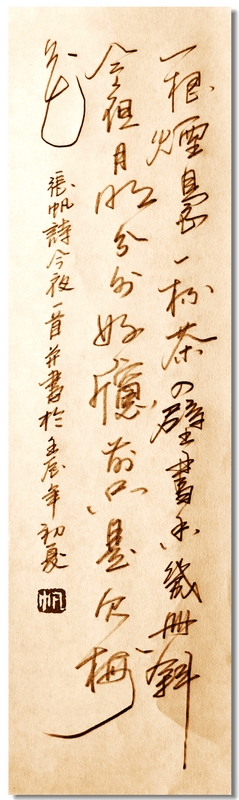 一根煙裊一杯茶四壁書香幾冊斜
今夜月明分外好窗前只是欠梅
花
張帆詩今夜一首并書於壬辰年初夏
帆